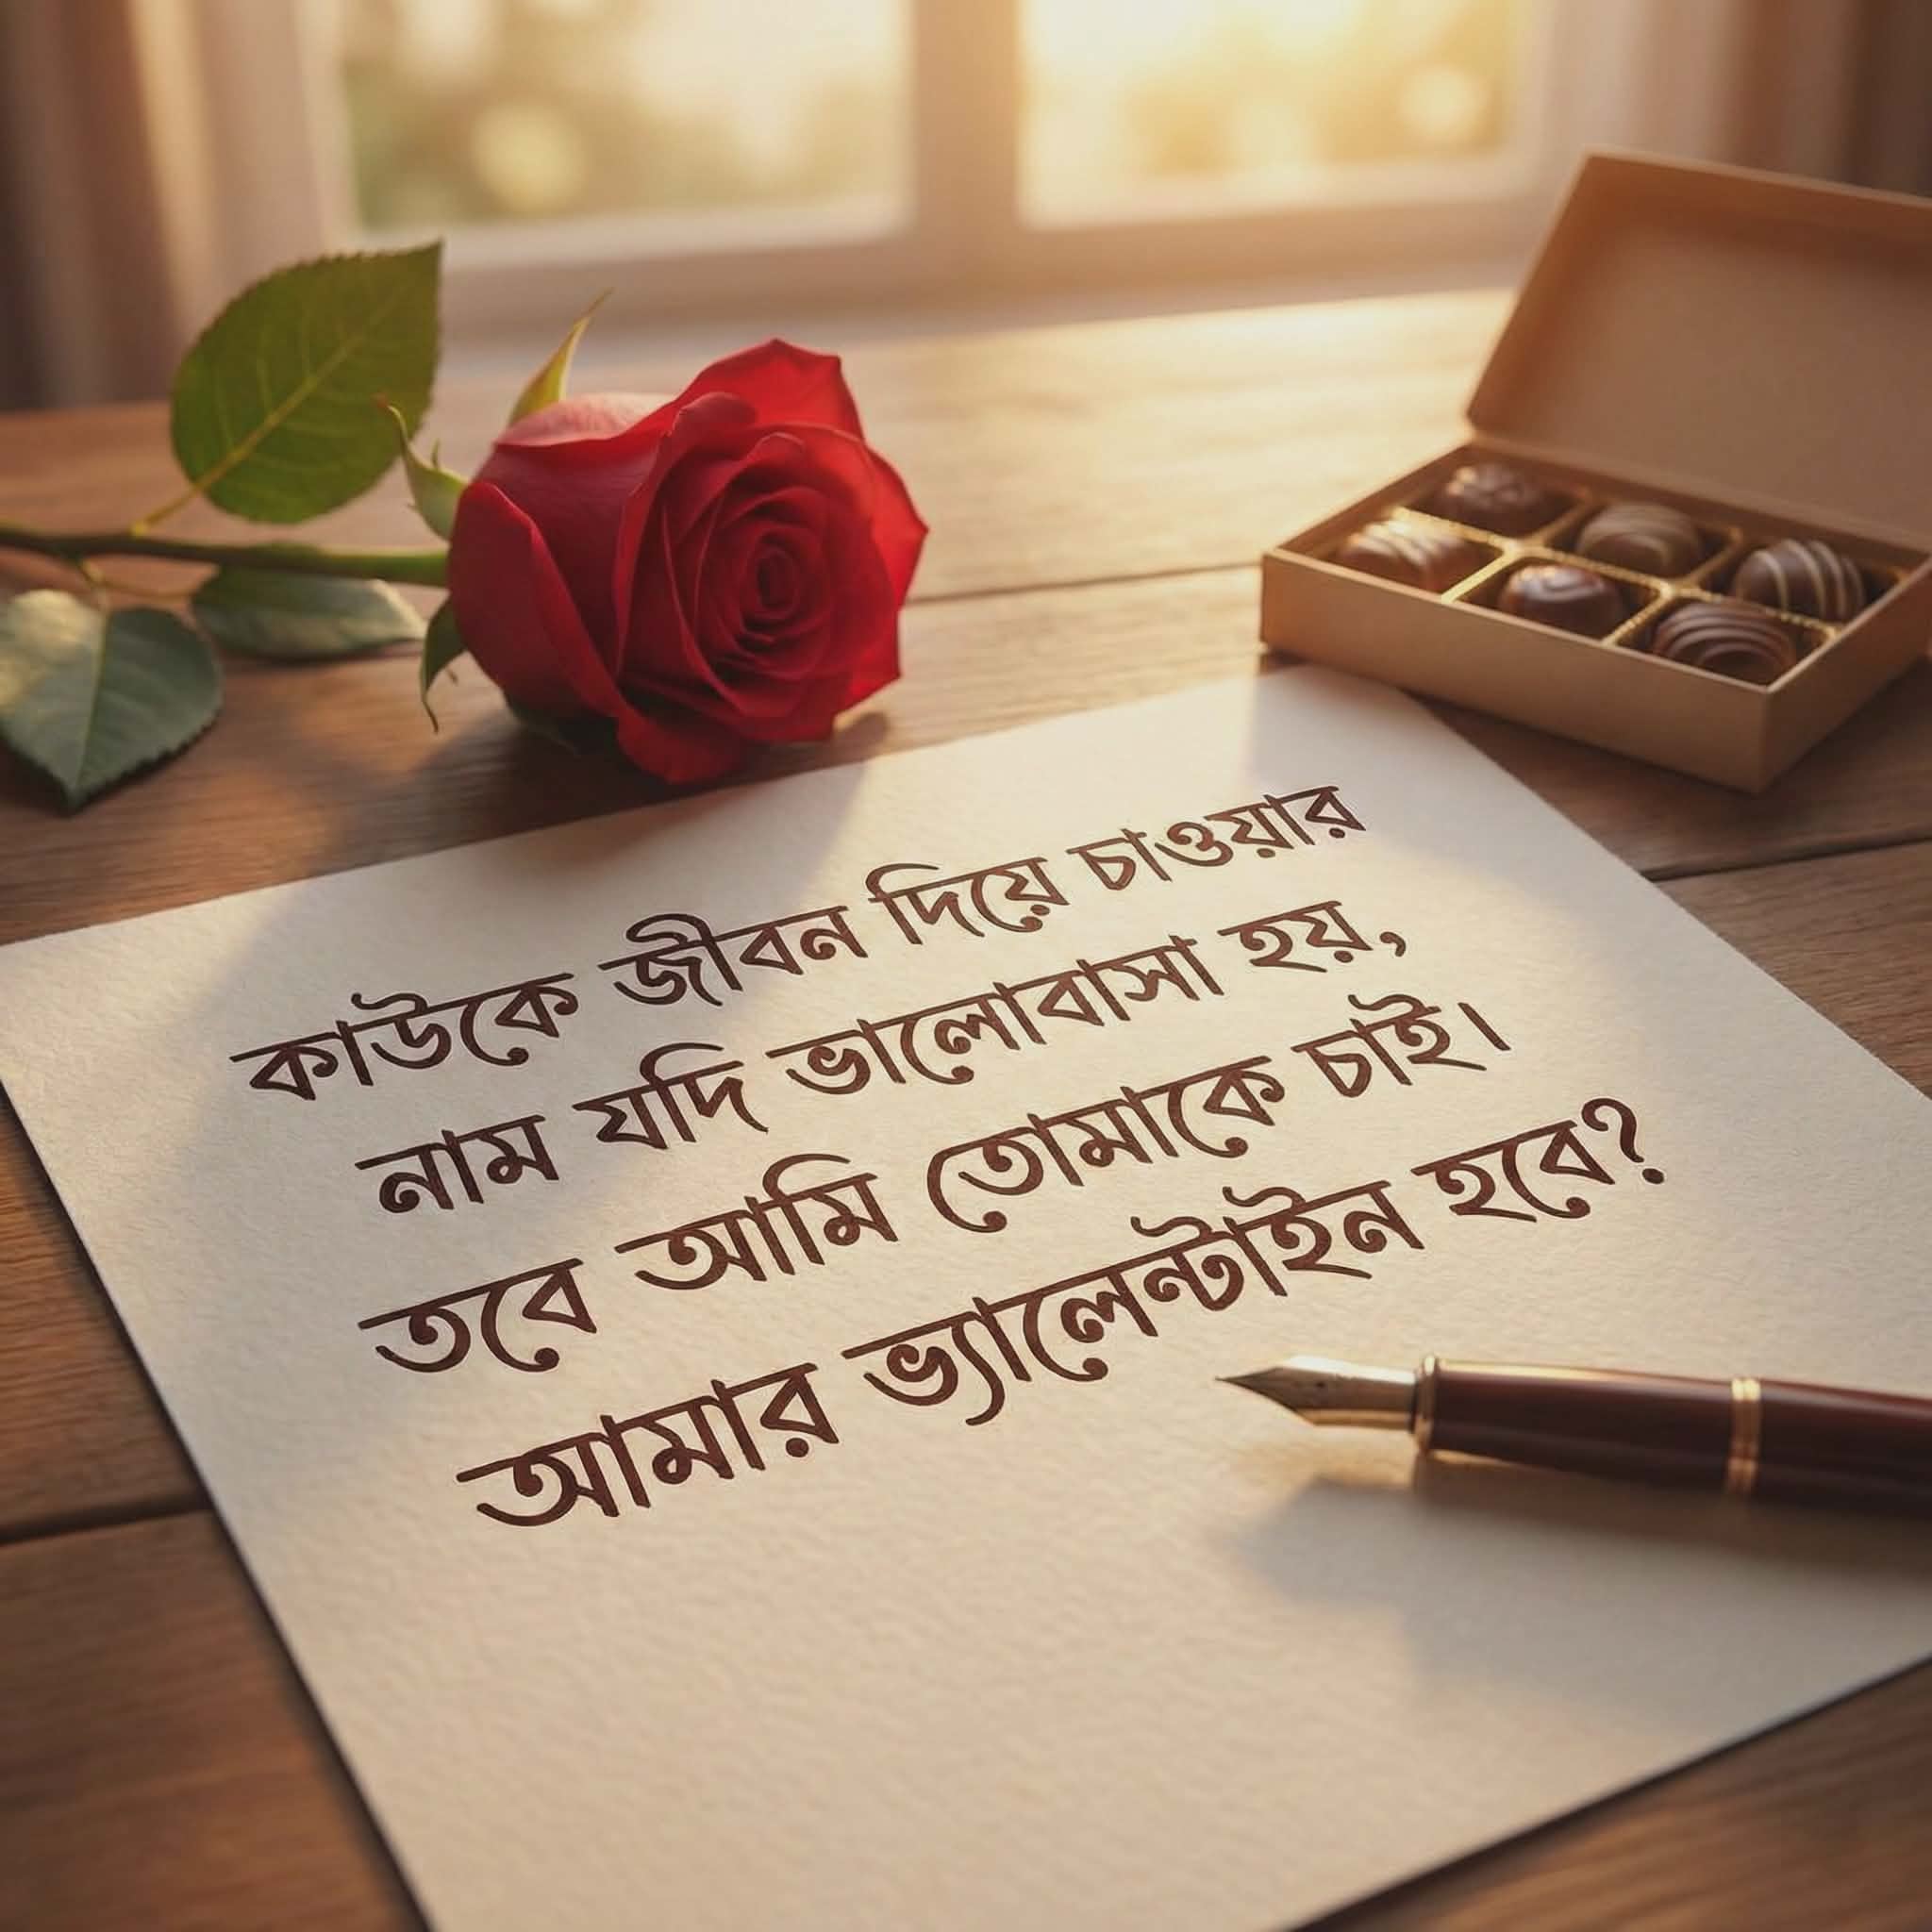 কাউকে জীবন দিয়ে চাওয়ার
নাম যদি ভালোবাসা হয়,
তবে আমি তোমাকে চাই।
আমার ভ্যালেন্টাইন হবে?